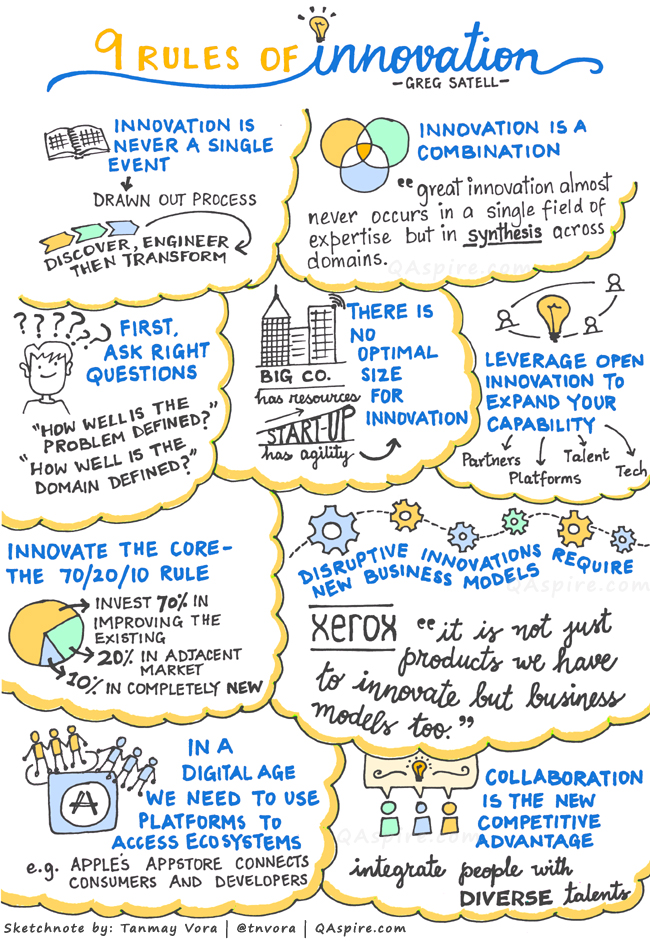 9 RULES OF innovation
- GREG SATELL -
INNOVATION IS
NEVER A SINGLE
EVENT
DRAWN OUT PROCESS
DISCOVER, ENGINEER
THEN TRANSFORM
INNOVATION IS A
COMBINATION
"great innovation almost
never occurs in a single field of
expertise but in synthesis across
domains.
QAspire.com
????
??
FIRST,
ASK RIGHT
QUESTIONS
"HOW WELL IS THE
PROBLEM DEFINED?"
"HOW WELL IS THE
DOMAIN DEFINED?"
THERE IS
NO
OPTIMAL
SIZE
FOR
INNOVATION
BIG CO.
has resources
START-UP
has agility
LEVERAGE OPEN
INNOVATION TO
EXPAND YOUR
CAPABILITY
Partners
Platforms
Talent
Tech
INNOVATE THE CORE-
THE 70/20/10 RULE
INVEST 70% IN
IMPROVING THE
EXISTING
20% IN ADJACENT
MARKET
10% IN COMPLETELY NEW
DISRUPTIVE INNOVATIONS REQUIRE
NEW BUSINESS MODELS
QAspire.com
xerox
"it is not just
products we have
to innovate but business
models too."
IN A
DIGITAL AGE
WE NEED TO USE
PLATFORMS TO
ACCESS ECOSYSTEMS
e.g. APPLE'S APPSTORE CONNECTS
CONSUMERS AND DEVELOPERS
COLLABORATION
IS THE NEW
COMPETITIVE
ADVANTAGE
QAspire.com
integrate people with
DIVERSE talents
Sketchnote by: Tanmay Vora | @tnvora | QAspire.com